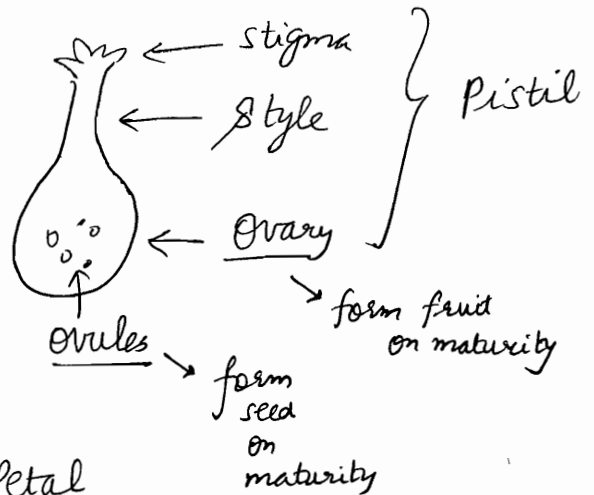 stigma
Style
Pistil
Ovary
form fruit
on maturity
Ovules
form
seed
on
maturity
Petal